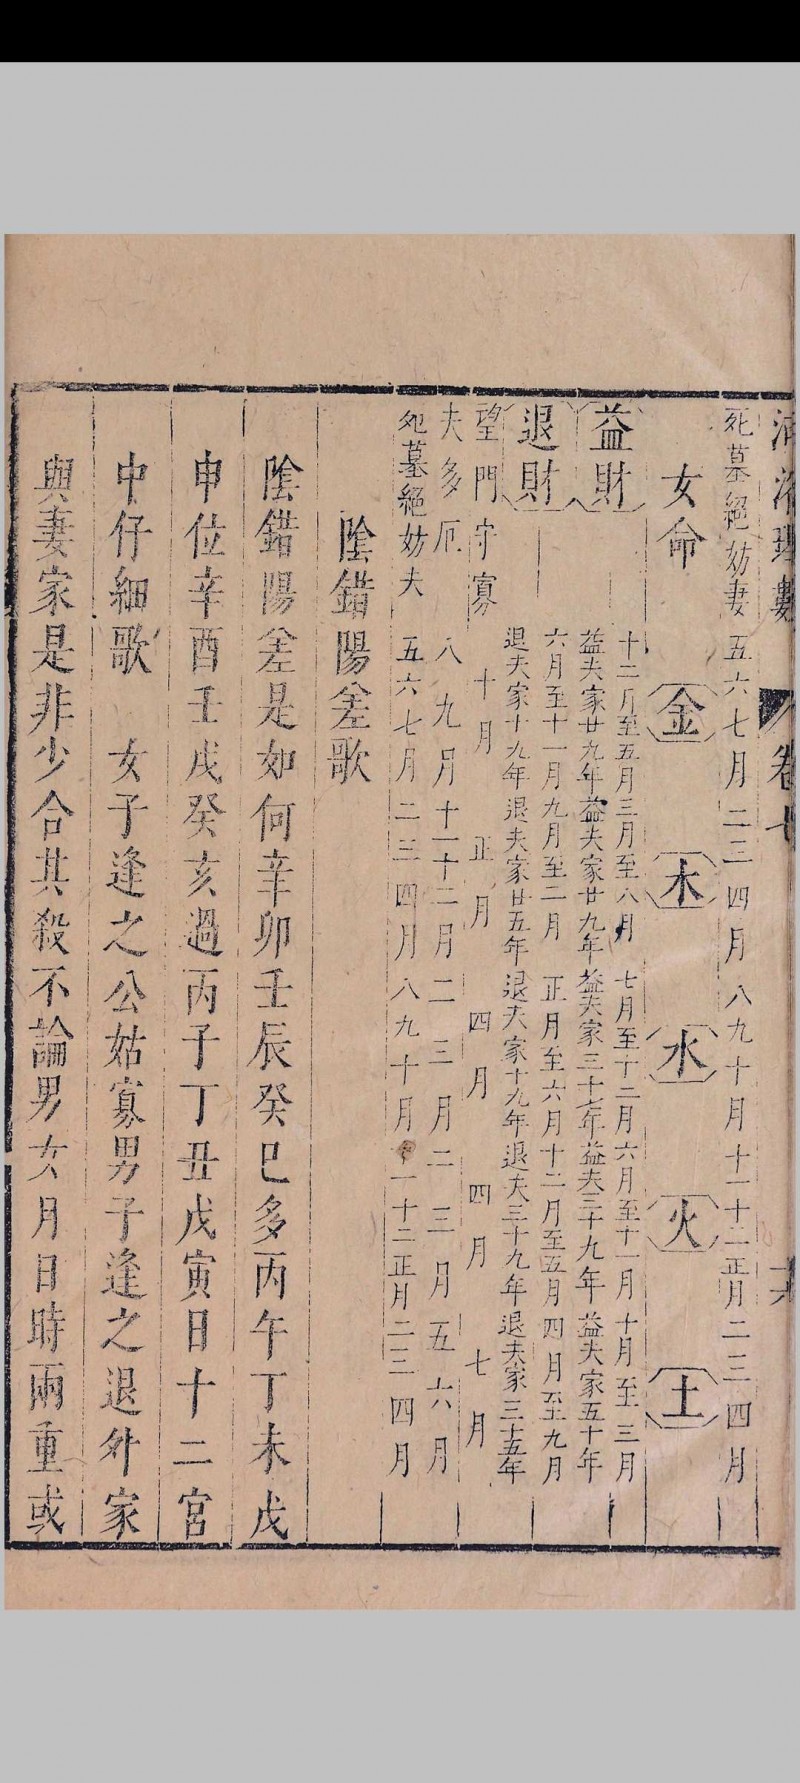 河洛理數 卷七
死墓絕妨妻 五六七月 二三四月 八九十月 十一十二正月 二三四月
女命 金 木 水 火 土
益財 十二月至五月 三月至八月 七月至十二月 六月至十一月 十月至三月
益夫家廿九年 益夫家廿九年 益夫家三十七年 益夫三十九年 益夫家五十年
退財 六月至十一月 九月至二月 正月至六月 十二月至五月 四月至九月
退夫家十九年 退夫家廿五年 退夫家十九年 退夫三十九年 退夫家三十五年
望門守寡 十月 正月 四月 四月 七月
夫多厄 八九月 十一十二月 二三月 二三月 五六月
死墓絕妨夫 五六七月 二三四月 八九十月 十一十二正月 二三四月
陰錯陽差歌
陰錯陽差是如何辛卯壬辰癸巳多丙午丁未戊
申位辛酉壬戌癸亥過丙子丁丑戊寅日十二宮
中仔細歌 女子逢之公姑寡男子逢之退外家
與妻家是非少合其殺不論男女月日時兩重或